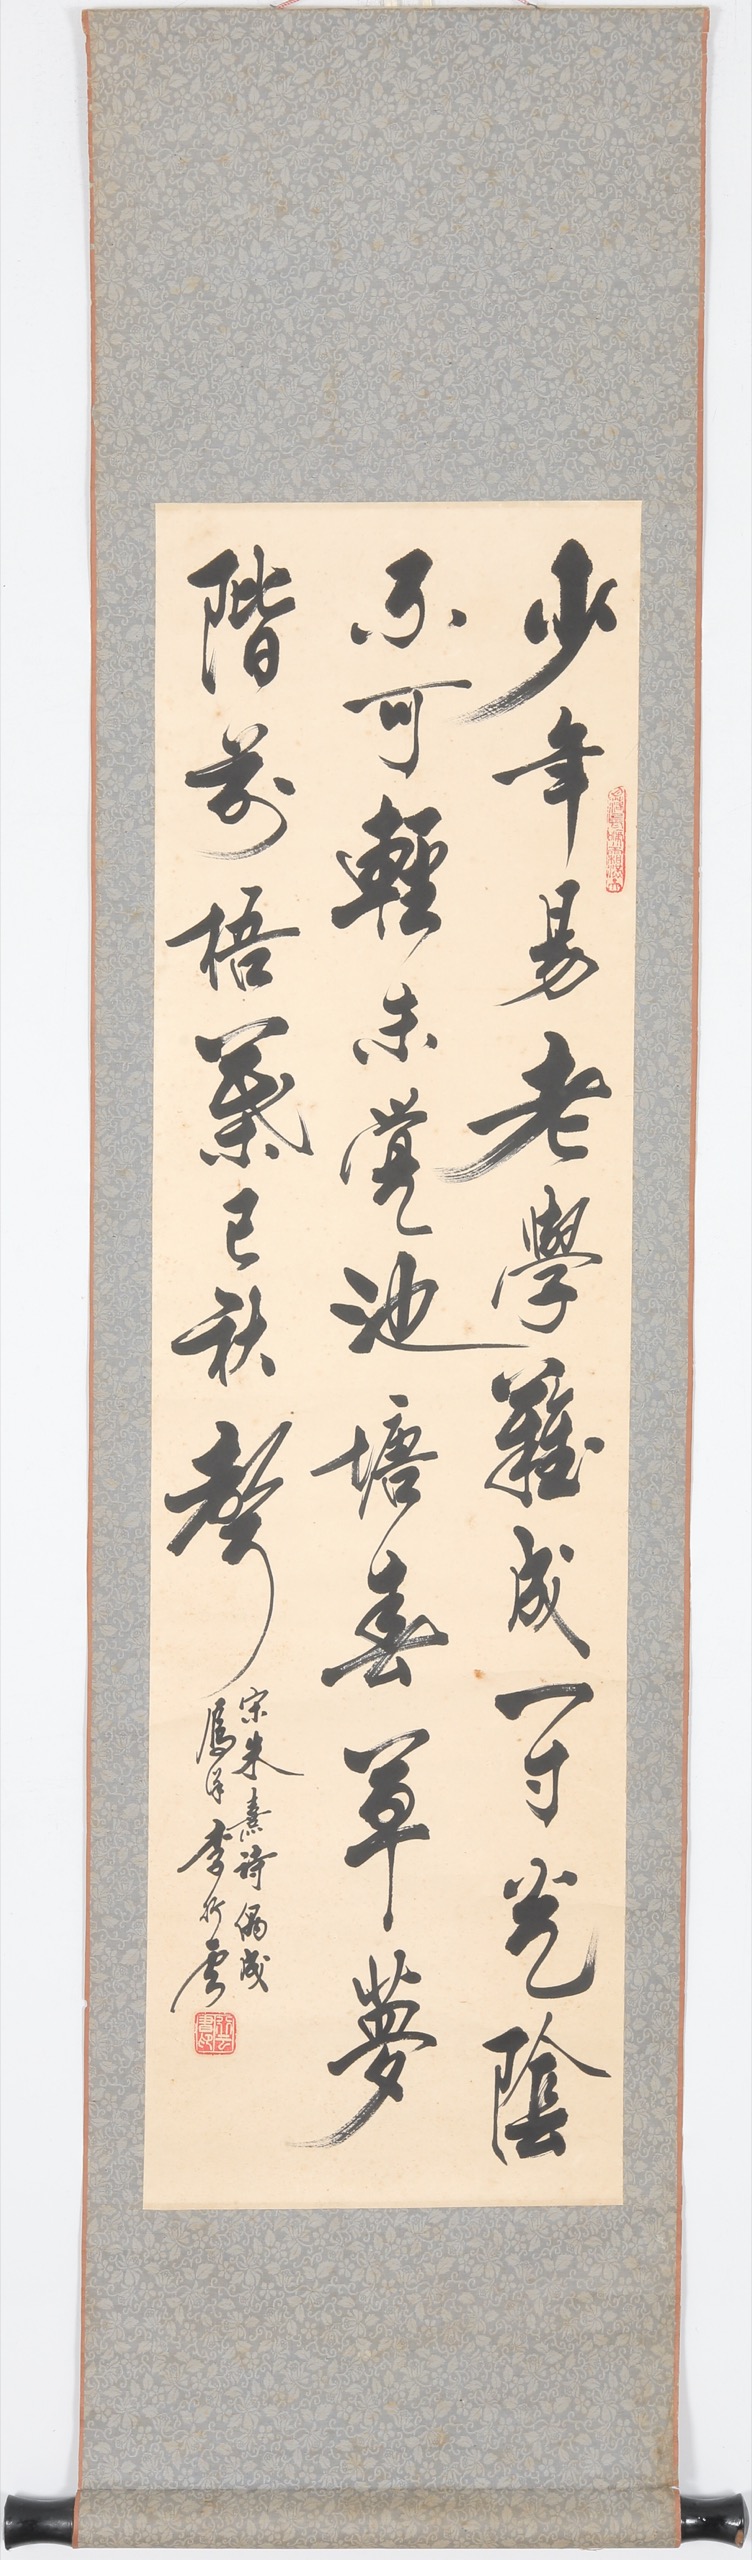 少年易老學難成一寸光陰
不可輕未覺池塘春草夢
階前梧葉已秋聲
宋朱熹詩偶成
李